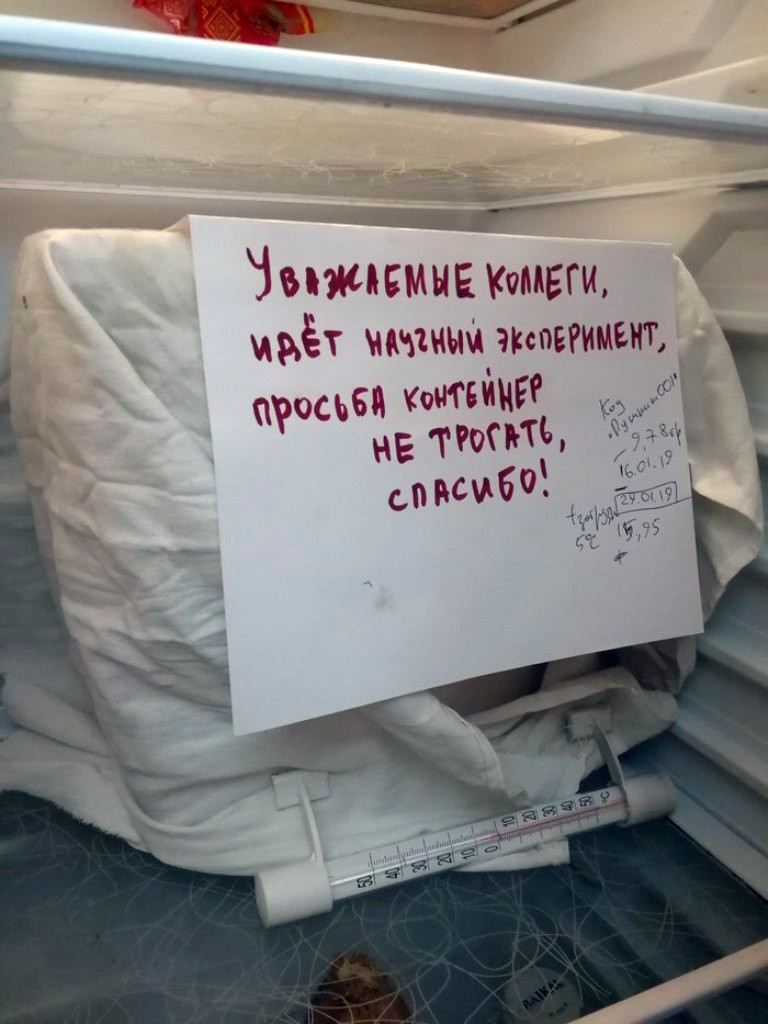 Уважаемые коллеги,
идёт научный эксперимент,
просьба контейнер
не трогать,
спасибо!
Код
9,78 гр
16.01.19
5°C
50 40 30 20 10 0 10 20 30 40 50 °C
BAIKAL